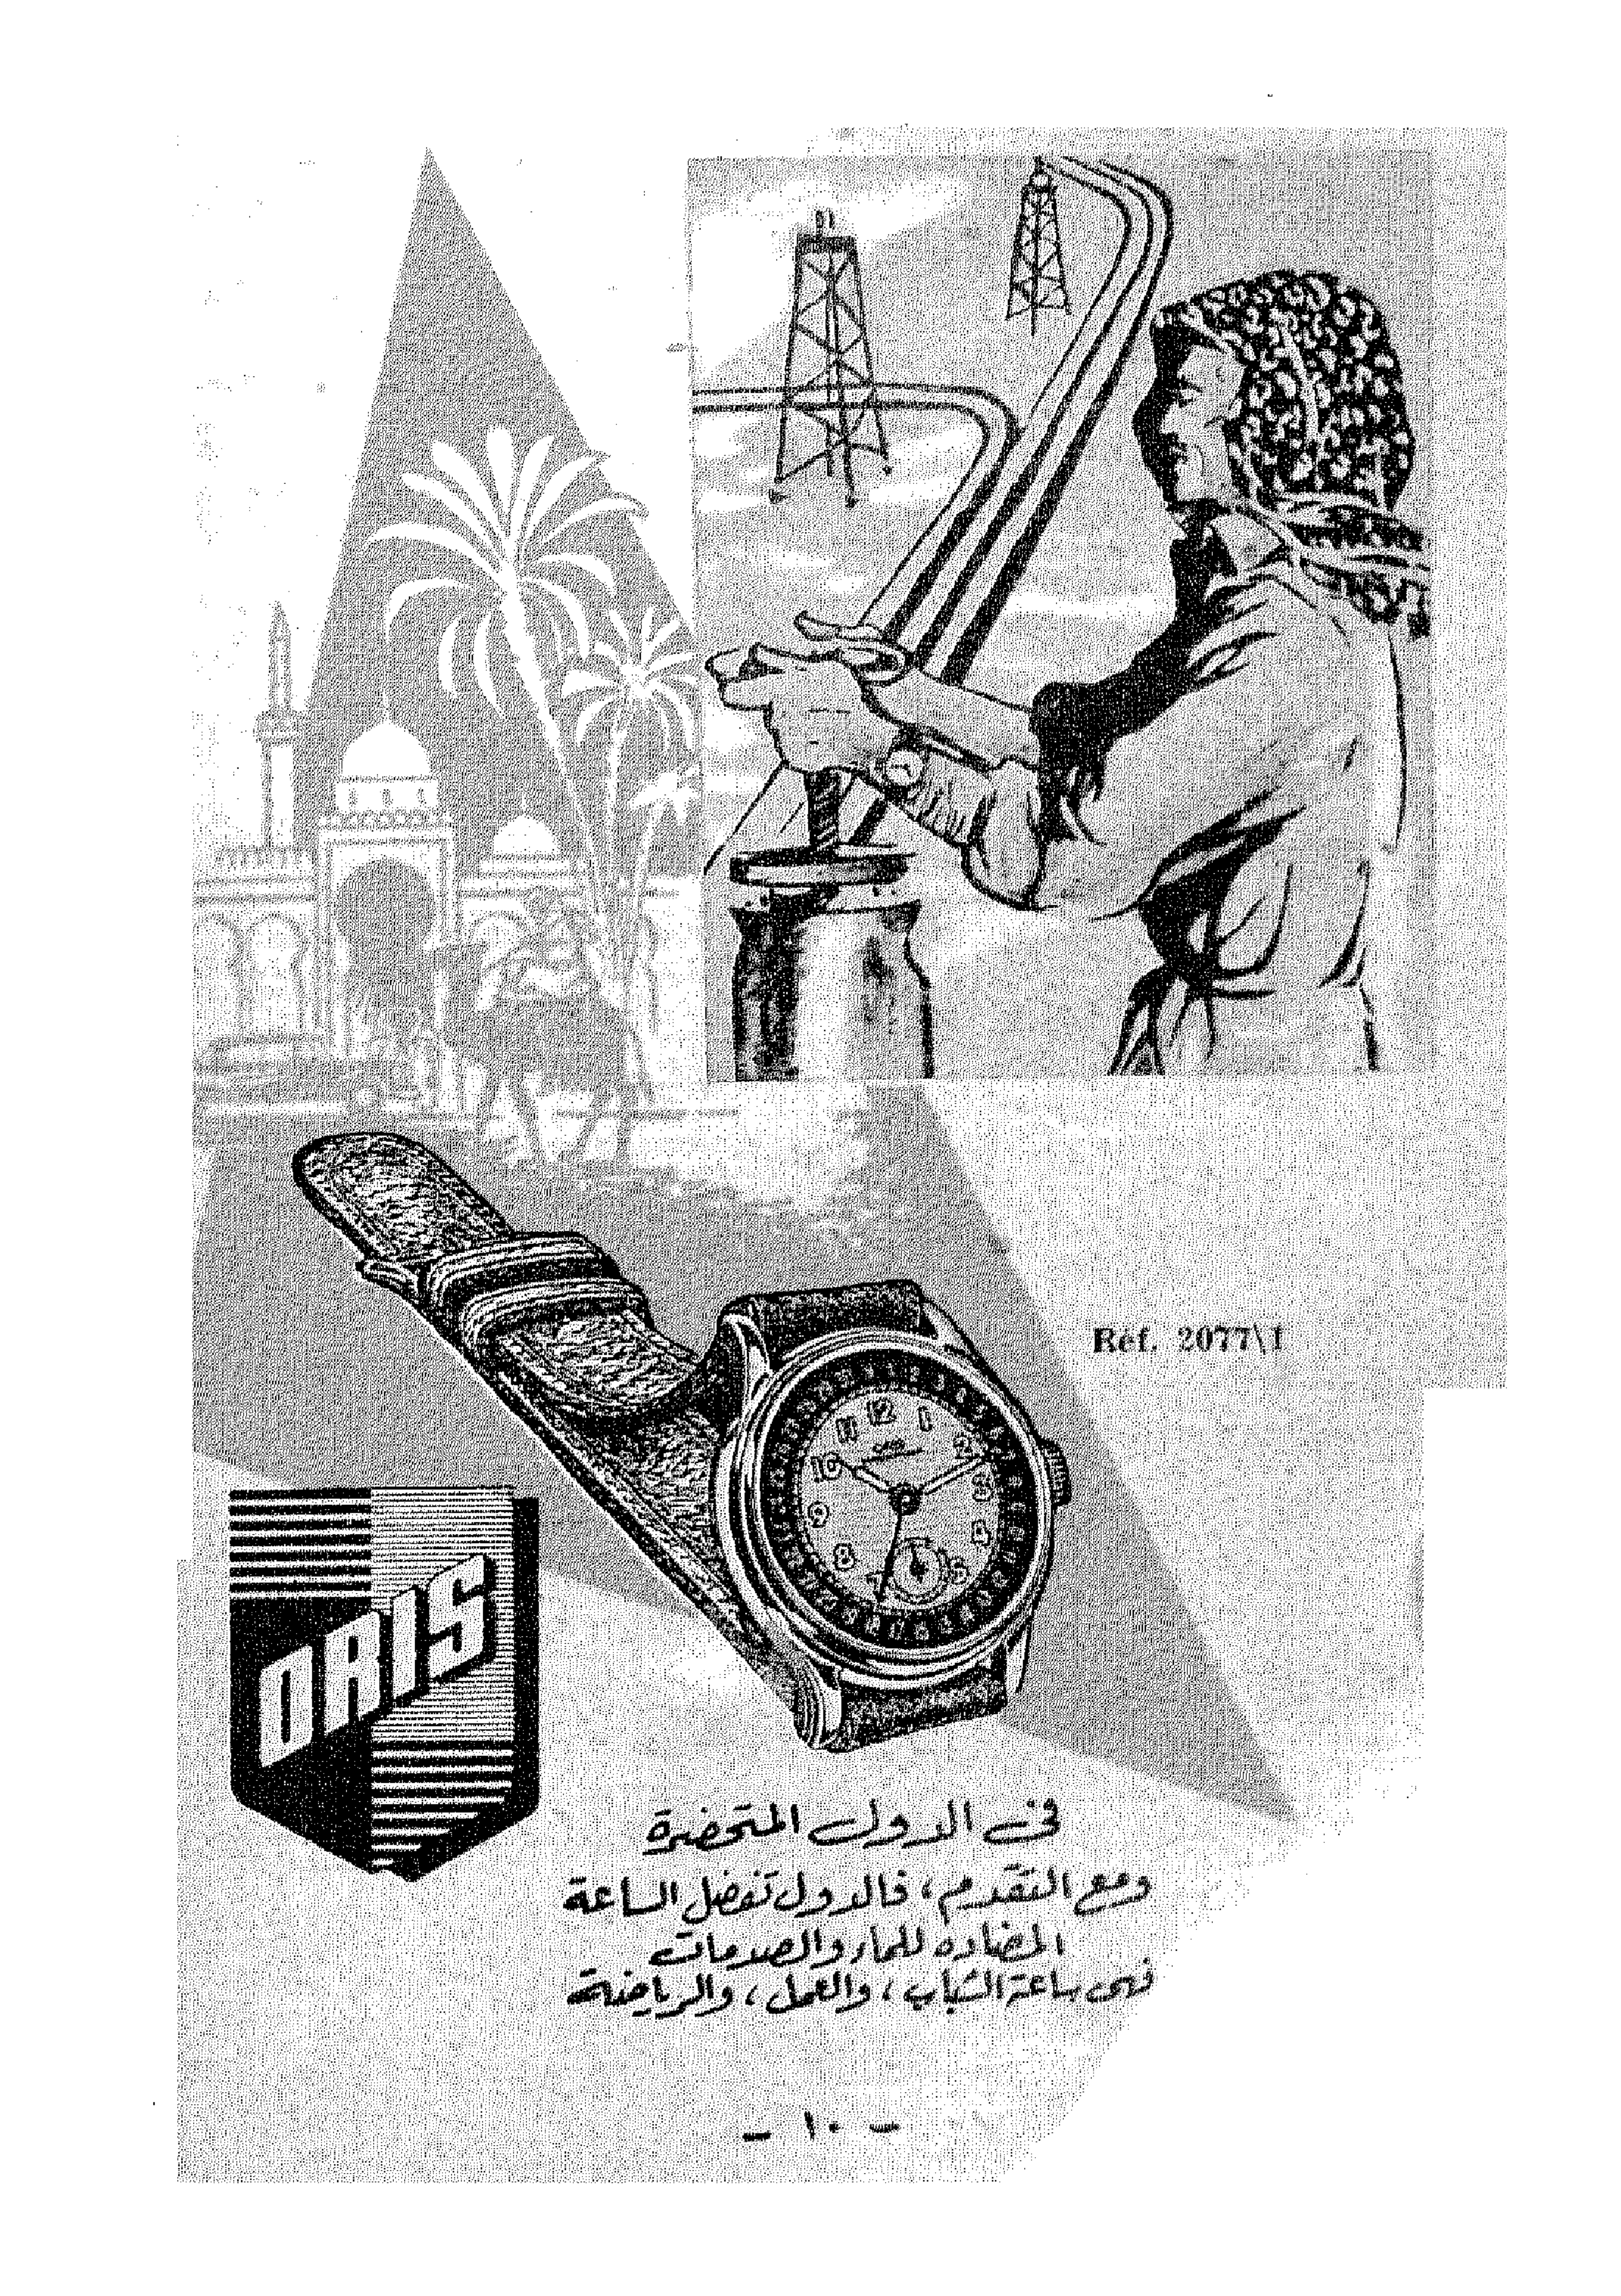 Réf. 2077\1
12 1 2 3 4 5 7 8 9 10 11
ORIS
في الدول المتحضرة
ومع التقدم، فالدول تفضل الساعة
المضاده للماء والصدمات
فهى ساعة الشباب، والعمل، والرياضة
- ١٠ -